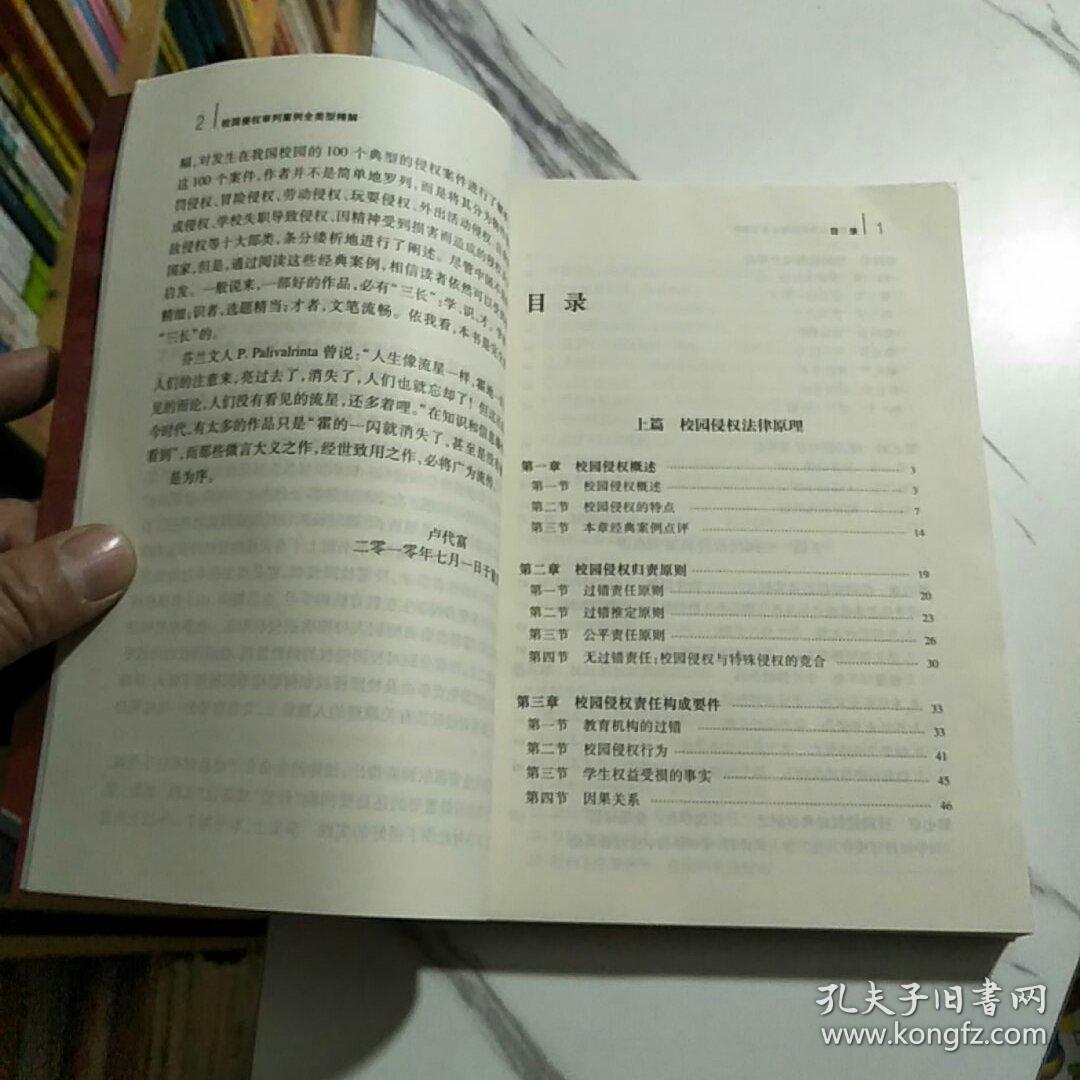 2 校园侵权审判案例全类型精解
幅,对发生在我国校园的100个典型的侵权案件进行了
这100个案件,作者并不是简单地罗列,而是将其分为
罚侵权、冒险侵权、劳动侵权、玩耍侵权、外出活动侵权、
成侵权、学校失职导致侵权、因精神受到损害而造成的侵权
故侵权等十大部类,条分缕析地进行了阐述。尽管中国不
国家,但是,通过阅读这些经典案例,相信读者依然可以
启发。一般说来,一部好的作品,必有“三长”:学、识、才。学
精细;识者,选题精当;才者,文笔流畅。依我看,本书是
“三长”的。
芬兰文人P. Palivalrinta曾说:“人生像流星一样,霍地一
人们的注意来,亮过去了,消失了,人们也就忘却了!但这
见的而论,人们没有看见的流星,还多着哩。”在知识和信息
今时代,有太多的作品只是“霍的一闪就消失了,甚至是没有
看到”,而那些微言大义之作,经世致用之作,必将广为流传。
是为序。
卢代富
二零一零年七月一日于
目录 1
目 录
上篇 校园侵权法律原理
第一章 校园侵权概述 3
第一节 校园侵权概述 3
第二节 校园侵权的特点 7
第三节 本章经典案例点评 14
第二章 校园侵权归责原则 19
第一节 过错责任原则 20
第二节 过错推定原则 23
第三节 公平责任原则 26
第四节 无过错责任:校园侵权与特殊侵权的竞合 30
第三章 校园侵权责任构成要件 33
第一节 教育机构的过错 33
第二节 校园侵权行为 41
第三节 学生权益受损的事实 45
第四节 因果关系 46
孔夫子旧书网
www.kongfz.com